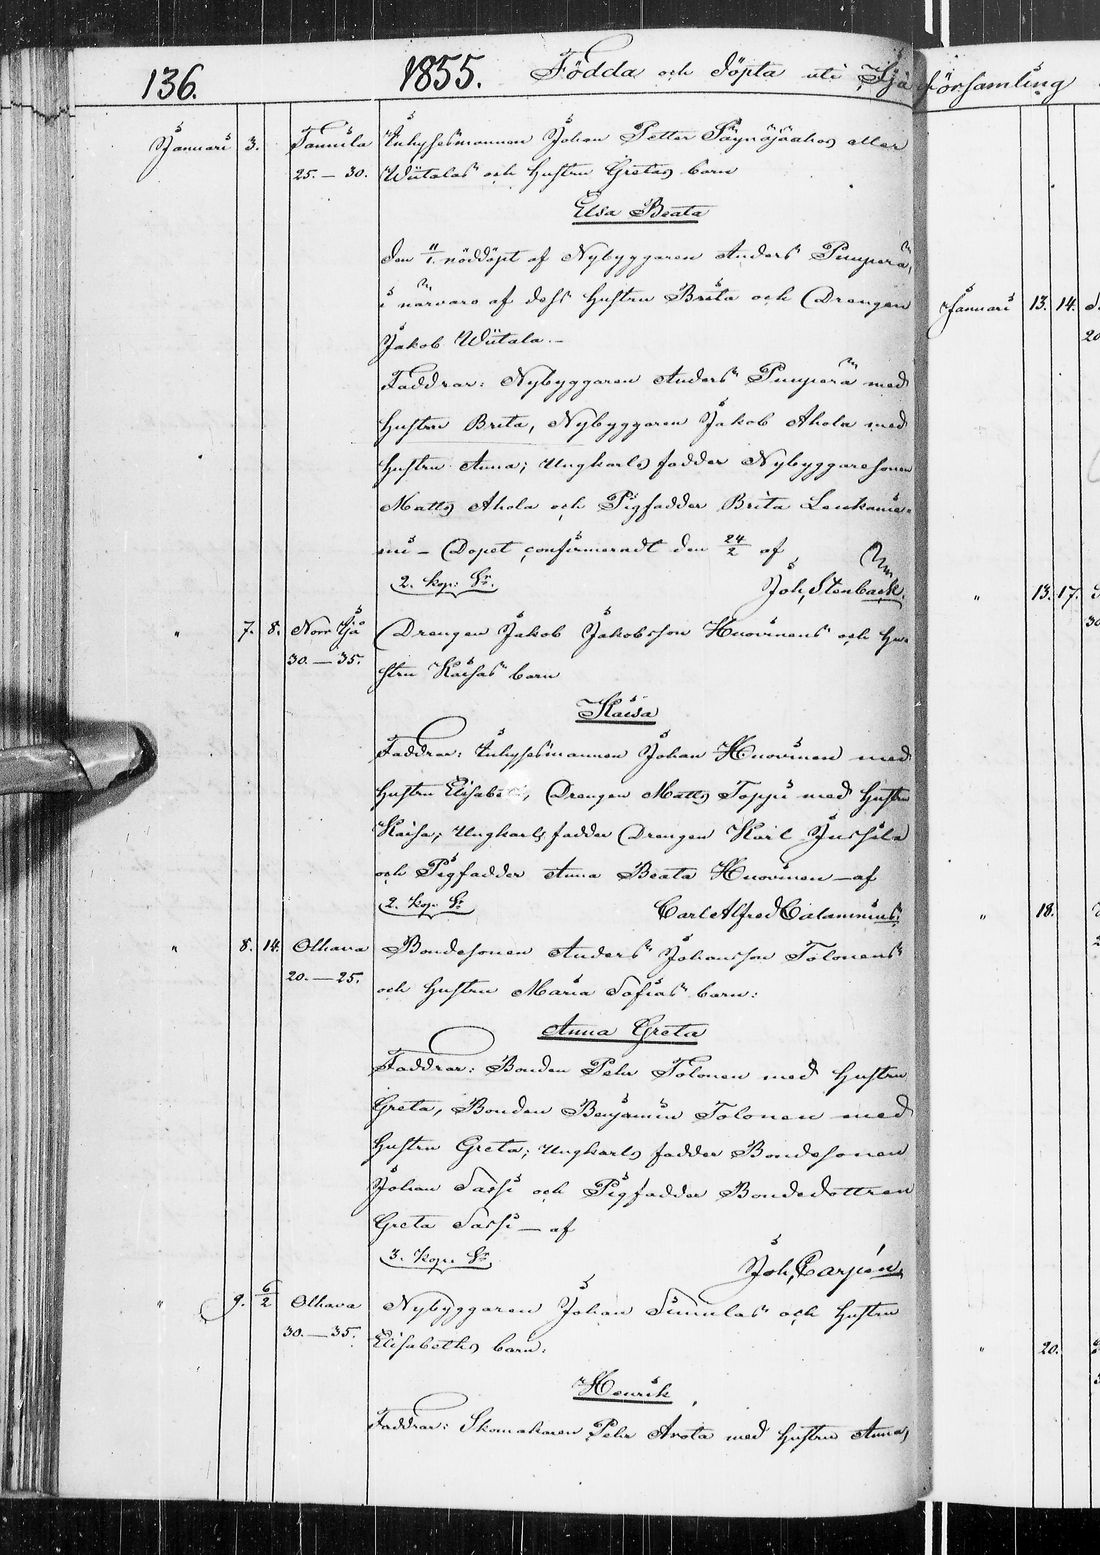 136. 1855. Födda och döpta uti Ijå församling
Januari 3. Tannila Inhysesmannen Johan Petter Päynäjäahos eller
25.—30. Wiitalas och hustru Gretas barn
Elsa Beata
den 11/1. nöddöpt af Nybyggaren Anders Puuperä,
i närvaro af dess hustru Brita och Drengen
Jakob Wiitala.—
Faddrar: Nybyggaren Anders Puuperä med
hustru Brita, Nybyggaren Jakob Ahola med
hustru Anna; Ungkarls fadder Nybyggaresonen
Matts Ahola och Pigfadder Brita Leukanie-
mi— Dopet confirmeradt den 24/2 af
2. kop: Sr. Joh, Stenbäck.
" 7. 8. Norr Ijå Drengen Jakob Jakobsson Huovinens och hu-
30.—35. stru Kaisas barn
Kaisa
Faddrar: Inhysesmannen Johan Huovinen med
hustru Elisabet, Drengen Matts Toppi med hustru
Kaisa; Ungkarls fadder Drengen Karl Jussila
och Pigfadder Anna Beata Huovinen—af
2. kop: Sr Carl Alfred Calamnius.
" 8. 14. Olhava Bondesonen Anders Johansson Tolonens
20.—25. och hustru Maria Sofias barn:
Anna Greta
Faddrar: Bonden Pehr Tolonen med hustru
Greta, Bonden Benjamin Tolonen med
hustru Greta; Ungkarls fadder Bondesonen
Johan Sassi och Pigfadder Bondedottren
Greta Sassi—af
3. kop: Sr. Joh, Carpén.
" 9. 6/2 Olhava Nybyggaren Johan Simulas och hustru
30.—35. Elisabeths barn:
Henrik
Faddrar: Skomakaren Pehr Avota med hustru Anna,
Januari 13. 14.
20
" 13. 17.
30
" 18.
" 20.